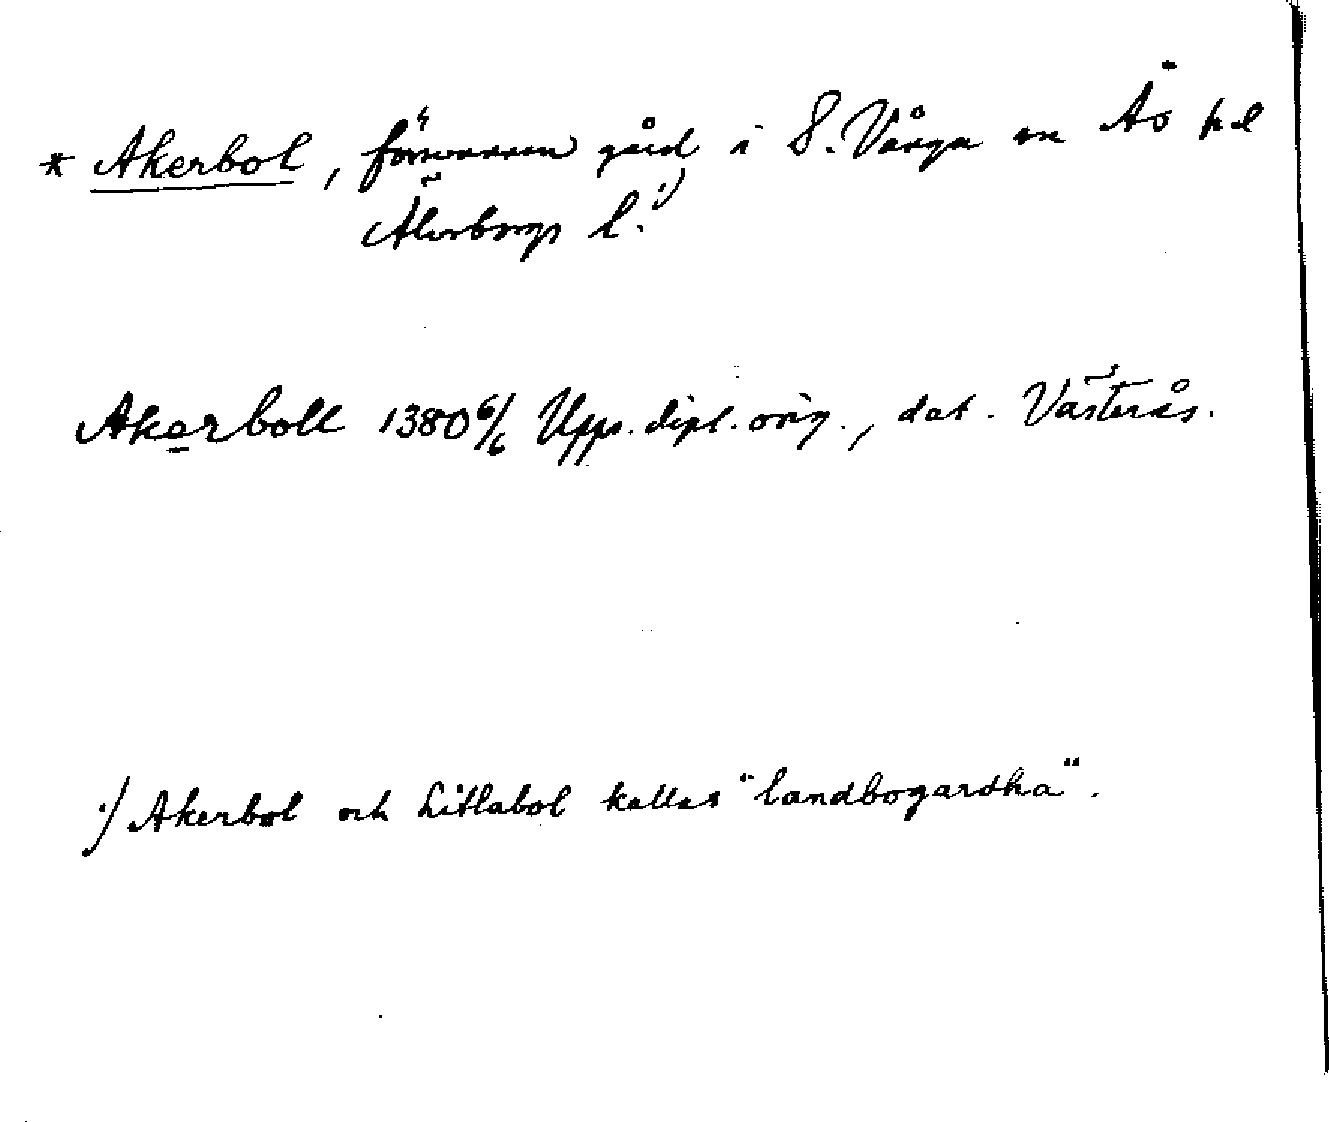 * Akerbol, försvunnen gård i S. Vånga sn Ås hd
Älvsborgs l. ¹)
Akerboll 1380 6/6 Upps. dipl. orig., dat. Västerås.
¹) Akerbol och Litlabol kallas "landbogardha".